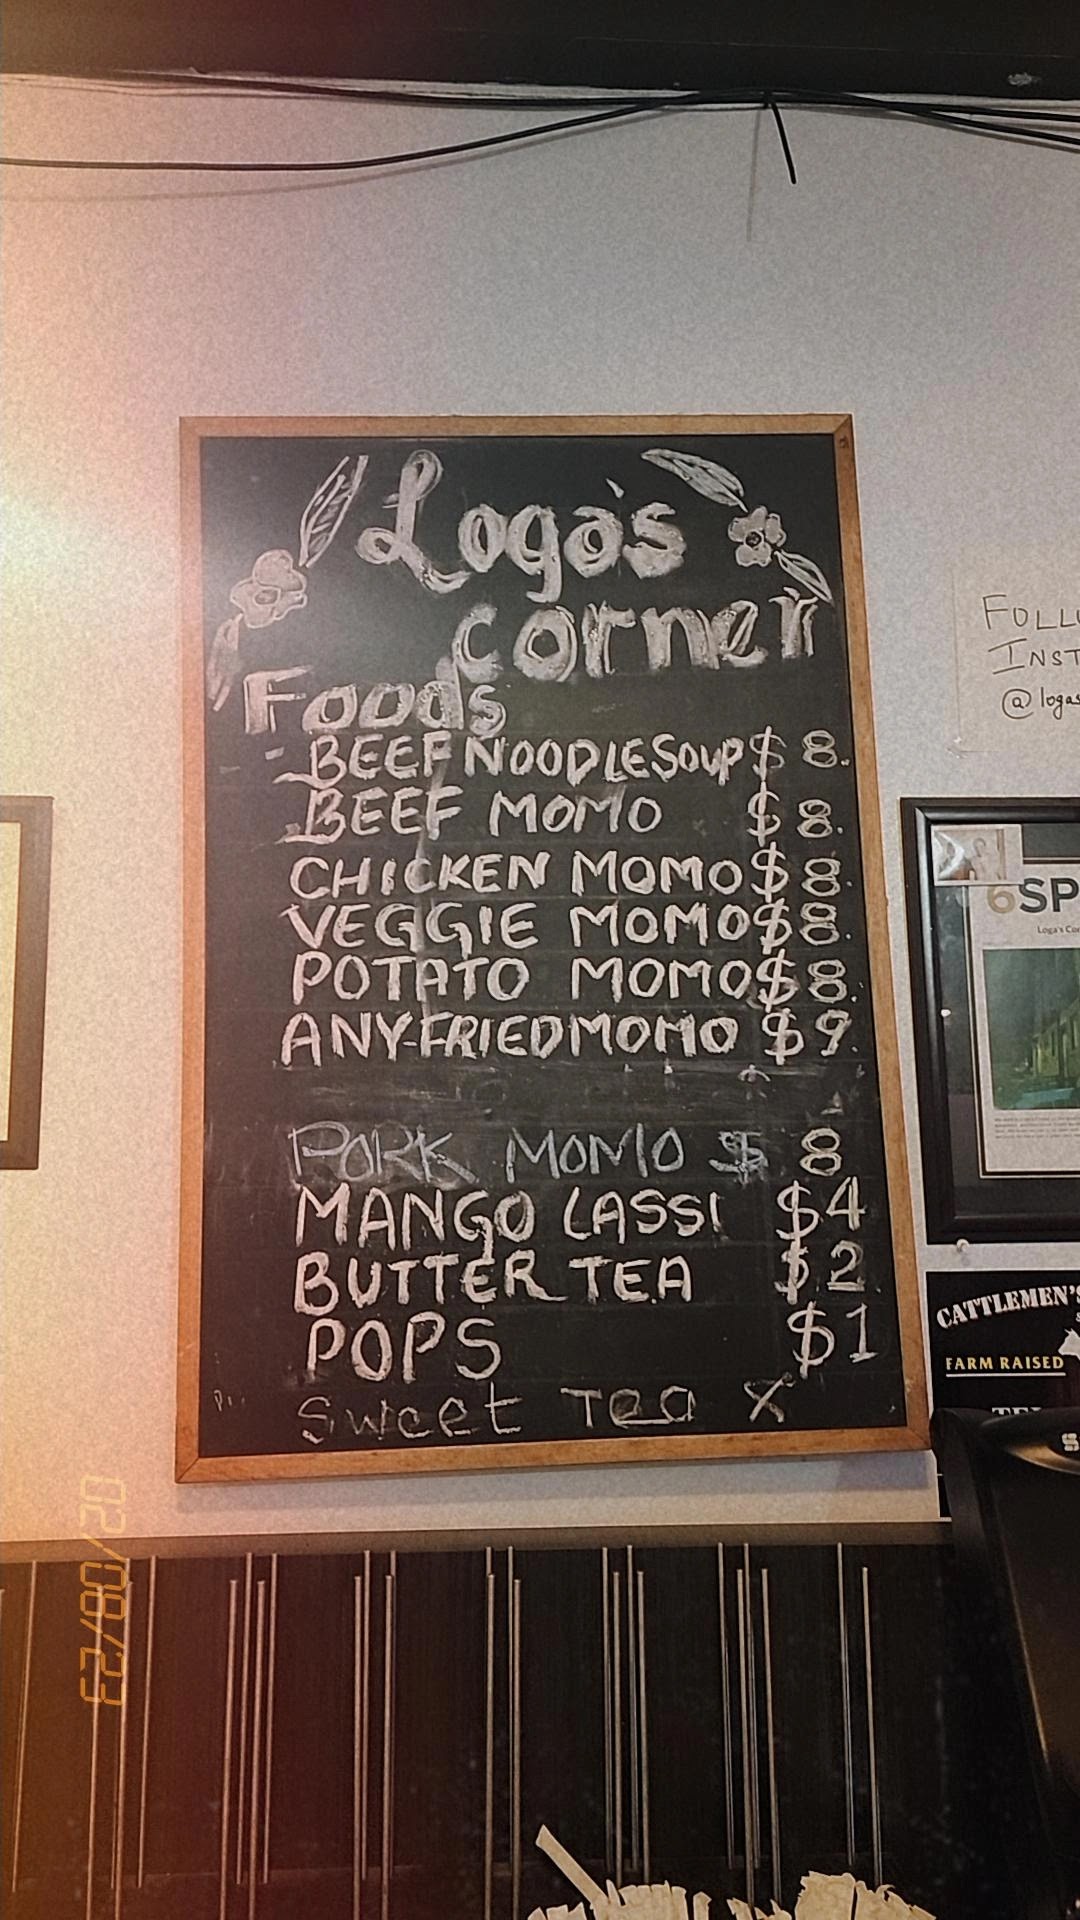 Loga's
corner
Foods
BEEF NOODLE SOUP $ 8.
BEEF MOMO $ 8.
CHICKEN MOMO $ 8.
VEGGIE MOMO $ 8.
POTATO MOMO $ 8.
ANY-FRIED MOMO $ 9.
PORK MOMO $ 8
MANGO LASSI $4
BUTTER TEA $2
POPS $1
Sweet Tea X
FOLL
INST
@logas
6SP
Loga's Co
CATTLEMEN'S
FARM RAISED
02/08/23